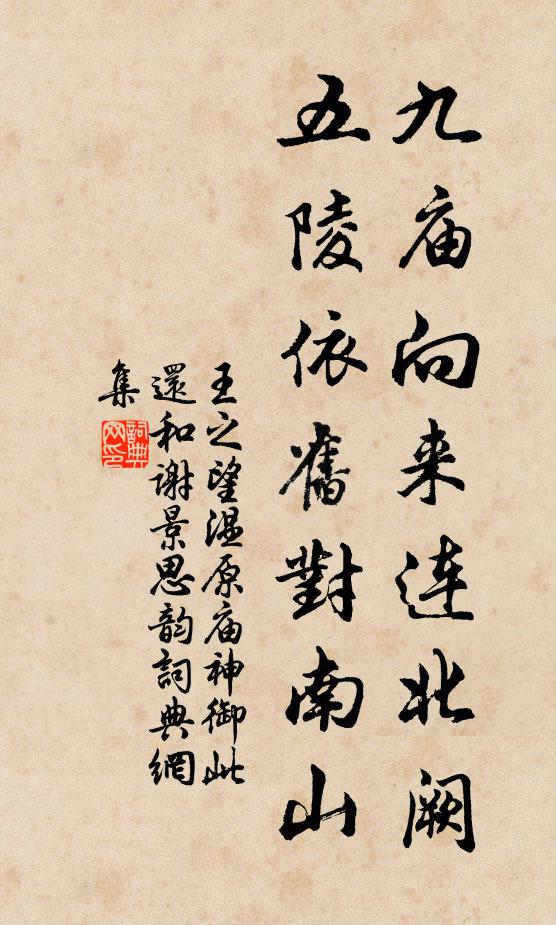 九庙向来连北阙
五陵依舊對南山
王之望温原庙神御此
還和谢景思韵詞典網
集
詞典
网印